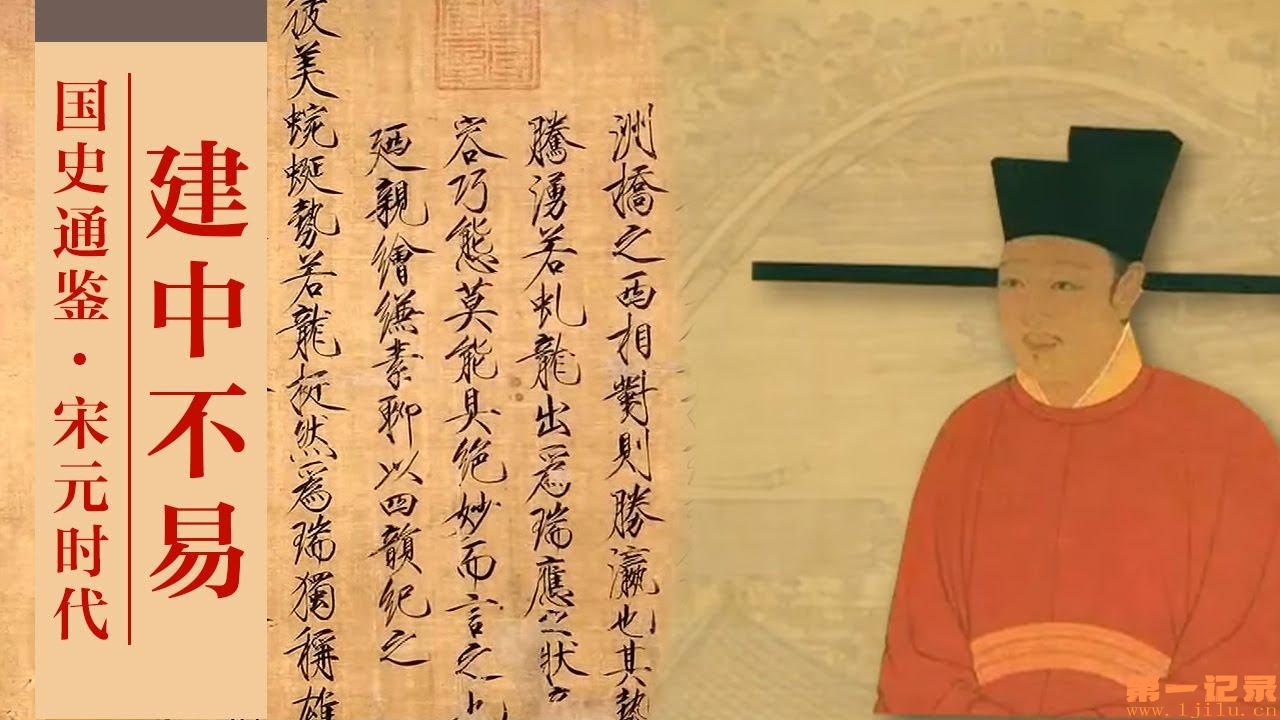 建中不易
国史通鉴·宋元时代
洲橋之西相對則勝瀛也其勢
騰湧若虬龍出爲瑞應之狀
容巧態莫能具絶妙而言之也
廼親繪縑素聊以四韻紀之
彼美蜿蜒勢若龍挺然爲瑞獨稱雄
第一记录
www.1jilu.cn